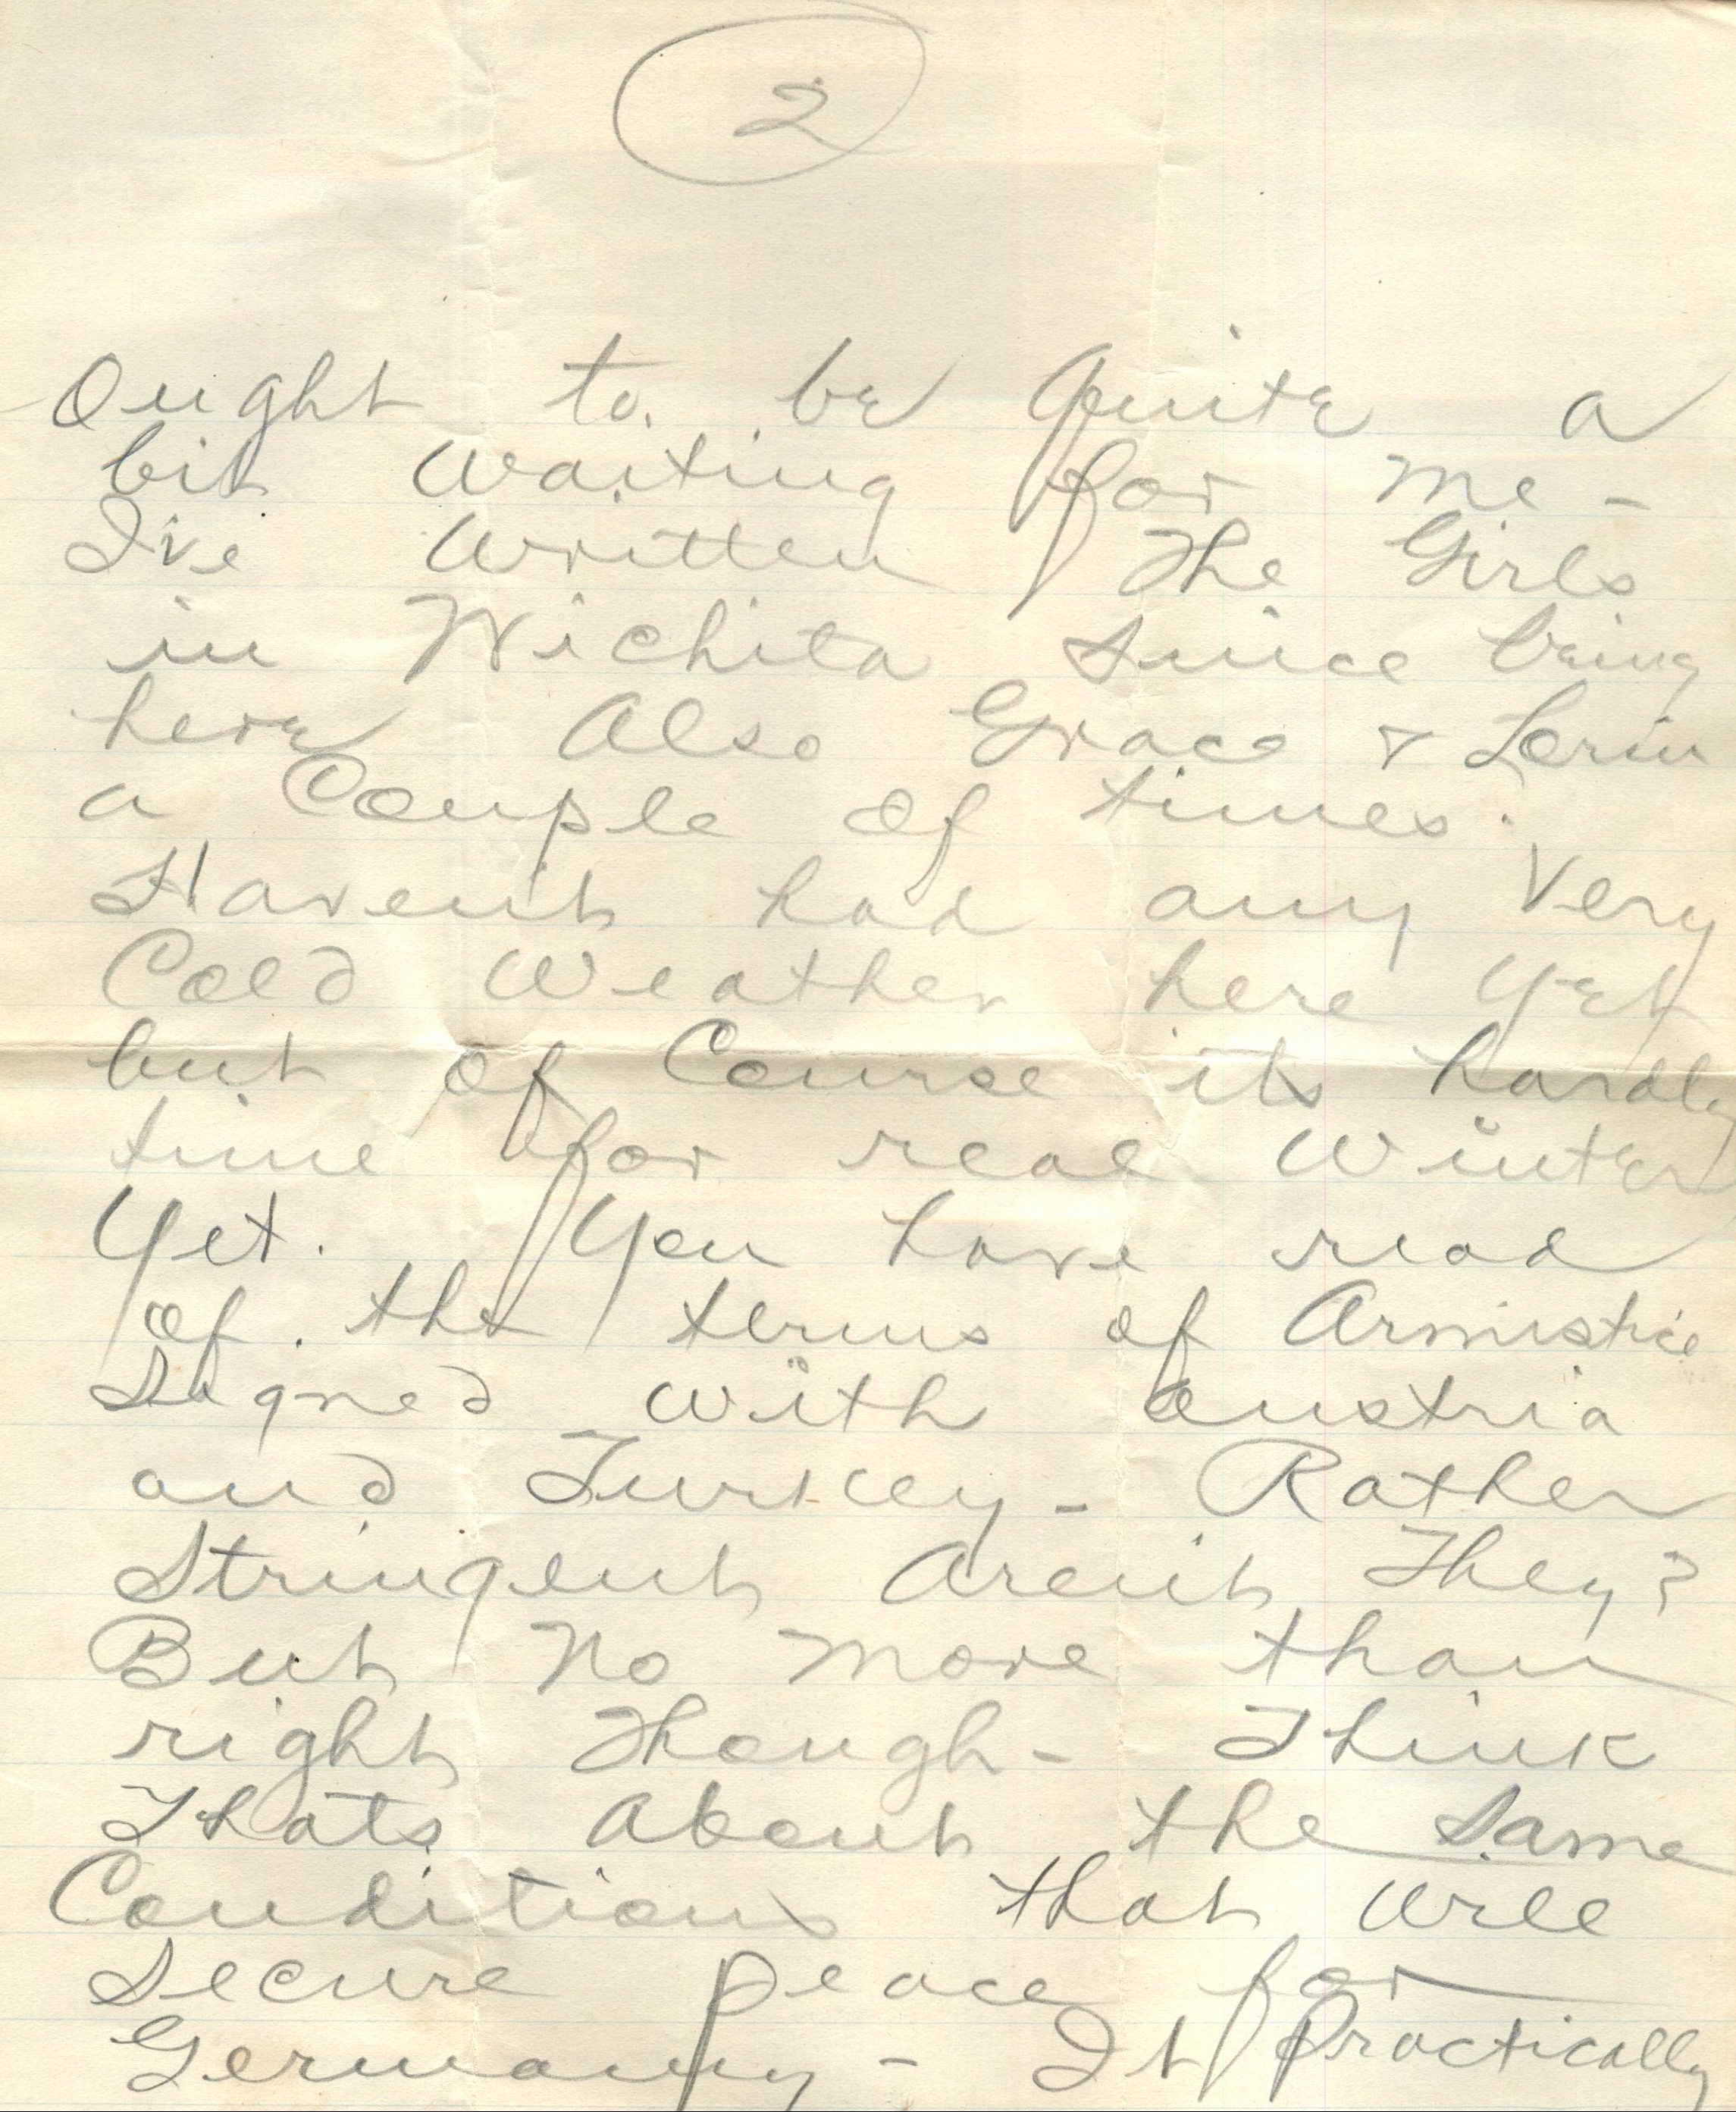 2
Ought to be Quite a
bit waiting for me -
I've written The Girls
in Wichita Since being
here Also Grace & Lorin
a Couple of times.
Haven't had any Very
Cold Weather here Yet
but of Course its hardly
time for real Winter
Yet. You have read
of the terms of Armistice
Signed with Austria
and Turkey - Rather
Stringent Aren't They?
But No more than
right Though - Think
Thats About the Same
Conditions that will
Secure peace for
Germany - It Practically